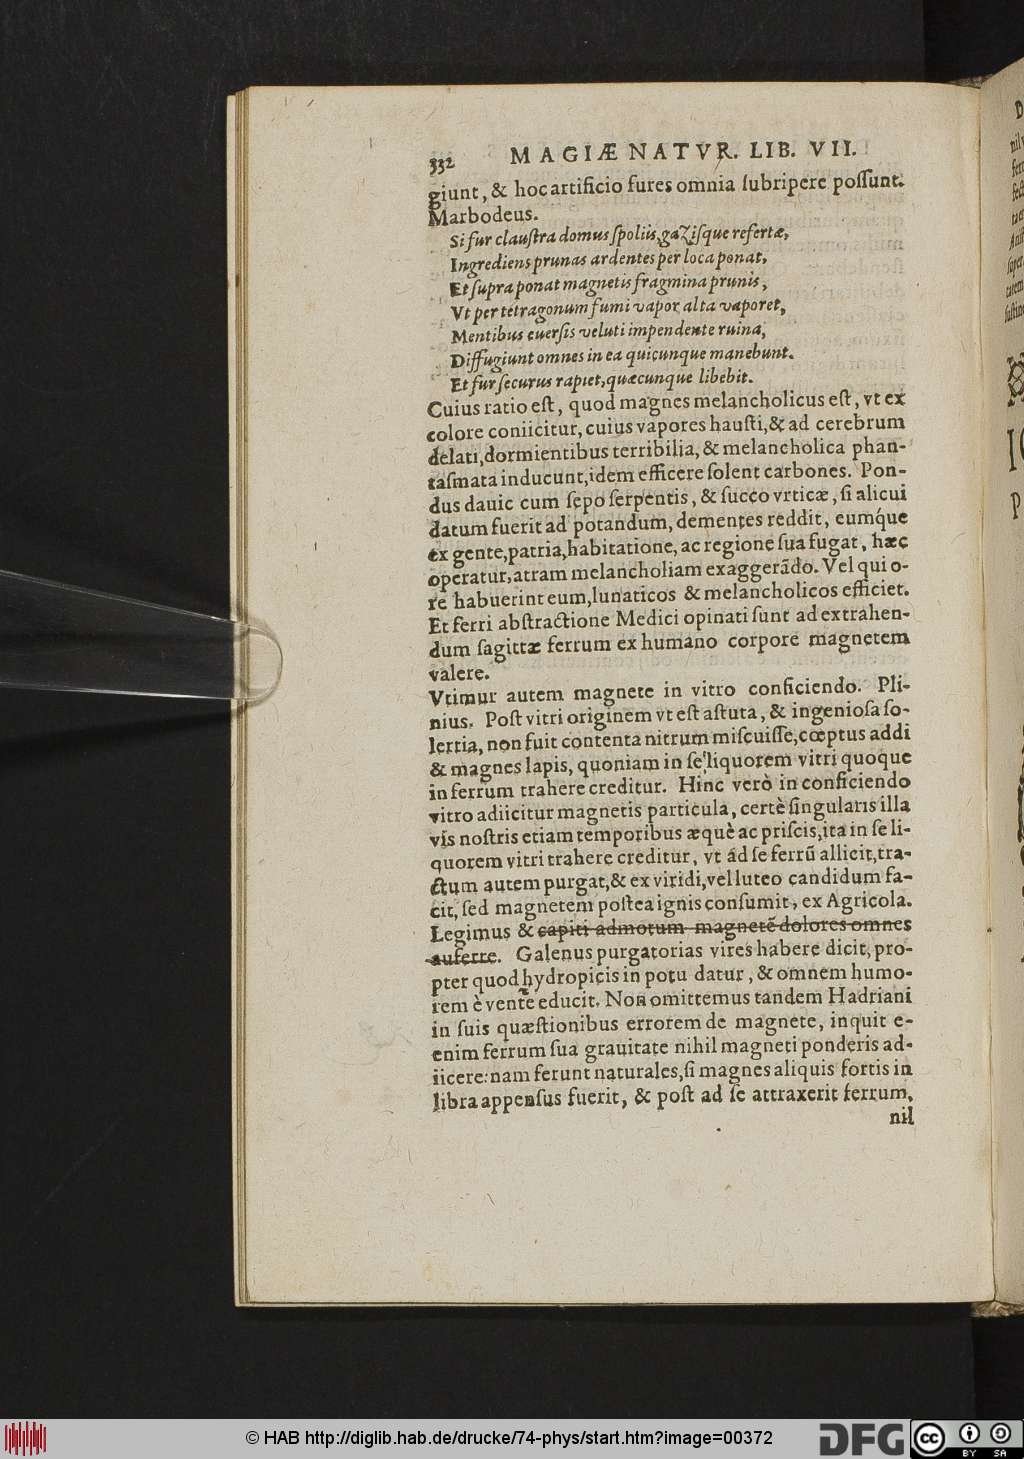 332 MAGIÆ NATVR. LIB. VII.
giunt, & hoc artificio fures omnia ſubripere poſſunt.
Marbodeus.
Si fur clauſtra domus ſpoliis, gaZiſque refertæ,
Ingrediens prunas ardentes per loca ponat,
Et ſupra ponat magnetis fragmina prunis,
Vt per tetragonum fumi vapor alta vaporet,
Mentibus euerſis veluti impendente ruina,
Diffugiunt omnes in ea quicunque manebunt.
Et fur ſecurus rapiet, quæcunque libebit.
Cuius ratio eſt, quod magnes melancholicus eſt, vt ex
colore coniicitur, cuius vapores hauſti, & ad cerebrum
delati, dormientibus terribilia, & melancholica phan-
taſmata inducunt, idem efficere ſolent carbones. Pon-
dus dauic cum ſepo ſerpentis, & ſucco vrticæ, ſi alicui
datum fuerit ad potandum, dementes reddit, eumq́ue
ex gente, patria, habitatione, ac regione ſua fugat, hæc
operatur, atram melancholiam exaggerādo. Vel qui o-
re habuerint eum, lunaticos & melancholicos efficiet.
Et ferri abſtractione Medici opinati ſunt ad extrahen-
dum ſagittæ ferrum ex humano corpore magnetem
valere.
Vtimur autem magnete in vitro conficiendo. Pli-
nius. Poſt vitri originem vt eſt aſtuta, & ingenioſa ſo-
lertia, non fuit contenta nitrum miſcuiſſe, cœptus addi
& magnes lapis, quoniam in ſe liquorem vitri quoque
in ferrum trahere creditur. Hinc verò in conficiendo
vitro adiicitur magnetis particula, certè ſingularis illa
vis noſtris etiam temporibus æquè ac priſcis, ita in ſe li-
quorem vitri trahere creditur, vt ád ſe ferrū allicit, tra-
ctum autem purgat, & ex viridi, vel luteo candidum fa-
cit, ſed magnetem poſtea ignis conſumit, ex Agricola.
Legimus & capiti admotum magnetē dolores omnes
auferre. Galenus purgatorias vires habere dicit, pro-
pter quod hydropicis in potu datur, & omnem humo-
rem è vente educit. Non omittemus tandem Hadriani
in ſuis quæſtionibus errorem de magnete, inquit e-
enim ferrum ſua grauitate nihil magneti ponderis ad-
iicere: nam ferunt naturales, ſi magnes aliquis fortis in
libra appenſus fuerit, & poſt ad ſe attraxerit ferrum,
nil
© HAB http://diglib.hab.de/drucke/74-phys/start.htm?image=00372
DFG
cc BY SA